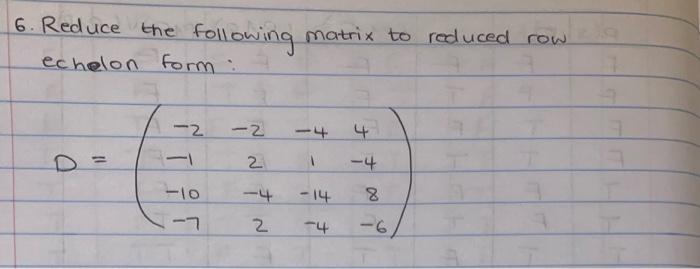 6. Reduce the following matrix to reduced row
echelon form :
-2 -2 -4 4
D = -1 2 1 -4
-10 -4 -14 8
-7 2 -4 -6